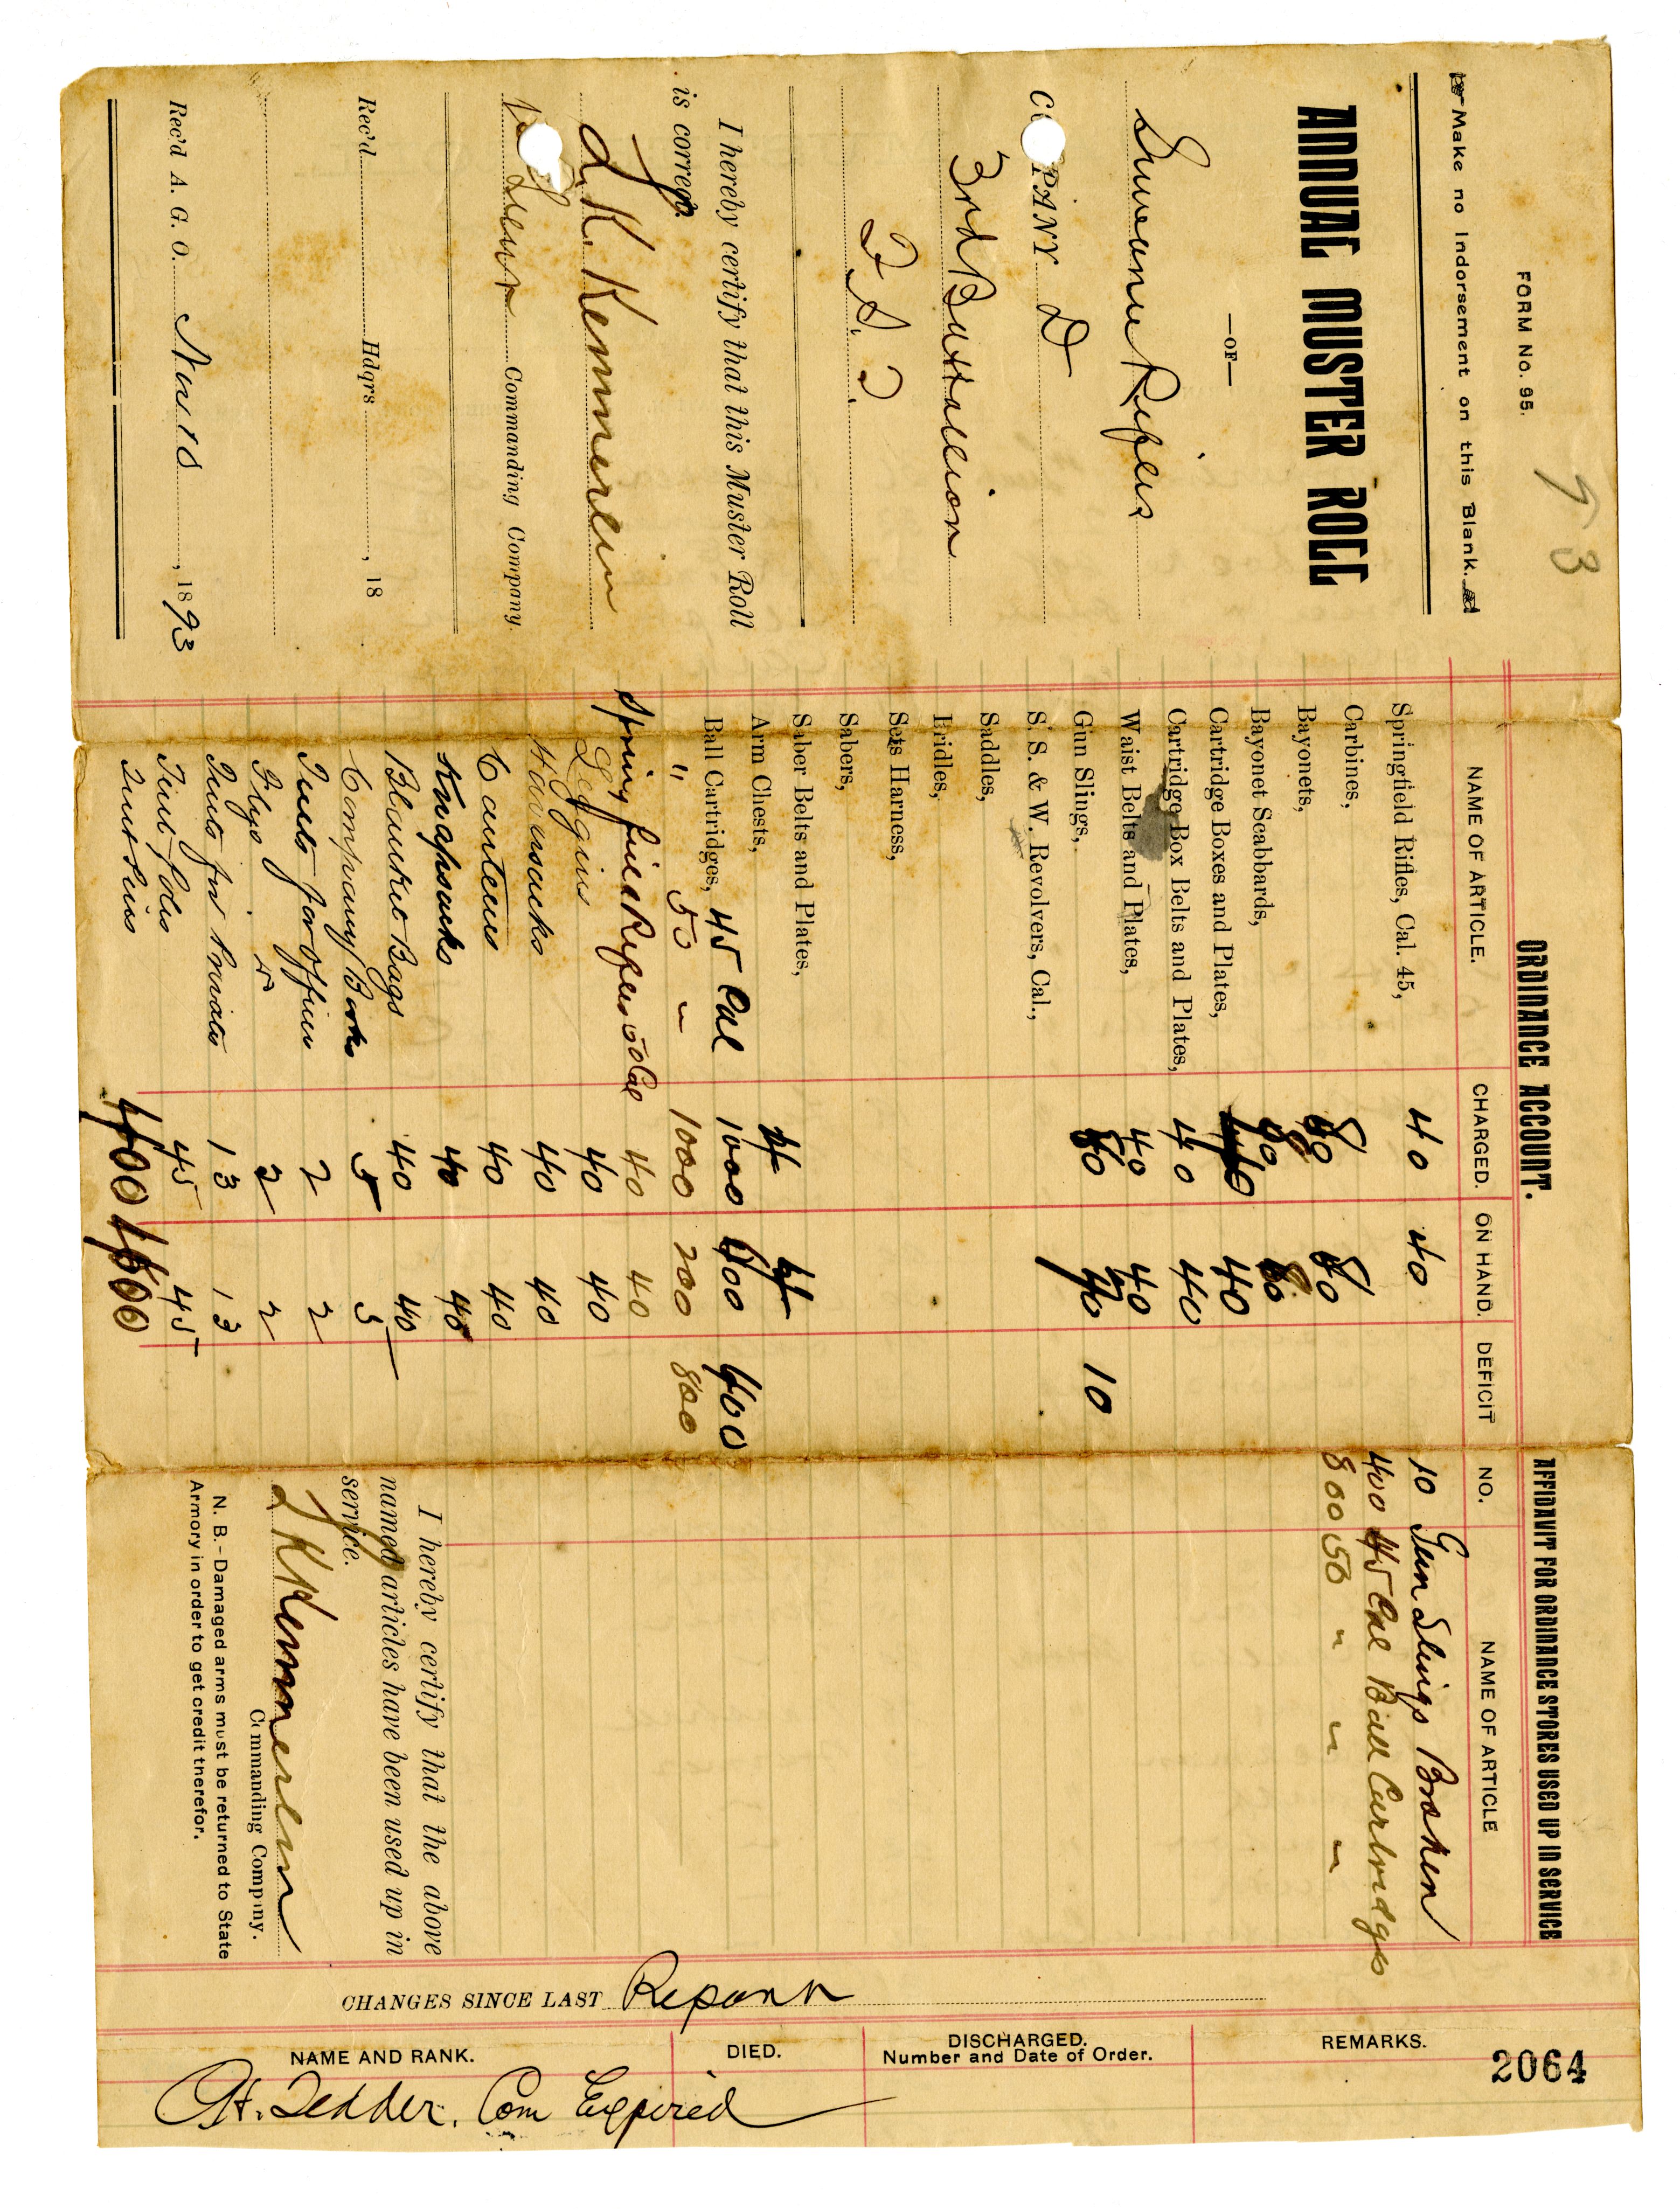 FORM No. 95.
93
Make no Indorsement on this Blank.
ANNUAL MUSTER ROLL
—OF—
Suwanne Rifles
COMPANY D
3rd Battalion
F. S. T.
I hereby certify that this Muster Roll
is correct.
L. K. Kennerlin
Commanding Company.
Rec'd Hdqrs , 18
Rec'd A. G. O. Nov. 18 , 1893
ORDINANCE ACCOUNT.
NAME OF ARTICLE. CHARGED. ON HAND. DEFICIT
Springfield Rifles, Cal. 45, 40 40
Carbines,
Bayonets, 80 80
Bayonet Scabbards, 80 80
Cartridge Boxes and Plates, 40 40
Cartridge Box Belts and Plates, 40 40
Waist Belts and Plates, 40 40
Gun Slings, 80 70 10
S. S. & W. Revolvers, Cal.,
Saddles,
Bridles,
Sets Harness,
Sabers,
Saber Belts and Plates,
Arm Chests, 4 4
Ball Cartridges, 45 Cal 1000 600 400
" 50 " 1000 200 800
Springfield Rifles 50 Cal 40 40
Leggins 40 40
Haversacks 40 40
Canteens 40 40
Knapsacks 40 40
Blanket Bags 40 40
Company Books 5 5
Tents for Officers 2 2
Flys " 2 2
Tents for Privates 13 13
Tent Poles 45 45
Tent Pins 400 400
AFFIDAVIT FOR ORDINANCE STORES USED UP IN SERVICE
NO. NAME OF ARTICLE
10 Gun Slings Broken
400 45 Cal Ball Cartridges
800 50 " " "
I hereby certify that the above
named articles have been used up in
service.
L K Kennerlin
Commanding Company.
N. B.–Damaged arms must be returned to State
Armory in order to get credit therefor.
CHANGES SINCE LAST Report
NAME AND RANK. DIED. DISCHARGED. Number and Date of Order. REMARKS.
2064
Tedder, Com Expired